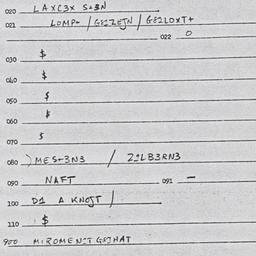 020 LAXC3X S+3N
021 LOMP+ / GE2ZEJN / GE2LOXT+
022 0
030 $
040 $
050 $
060 $
070 $
080 ) MES+3N3 / Z1LB3RN3
090 NAFT 091 —
100 D1 A KNOJT /
110 $
900 MIROMEN2T GE2HAT